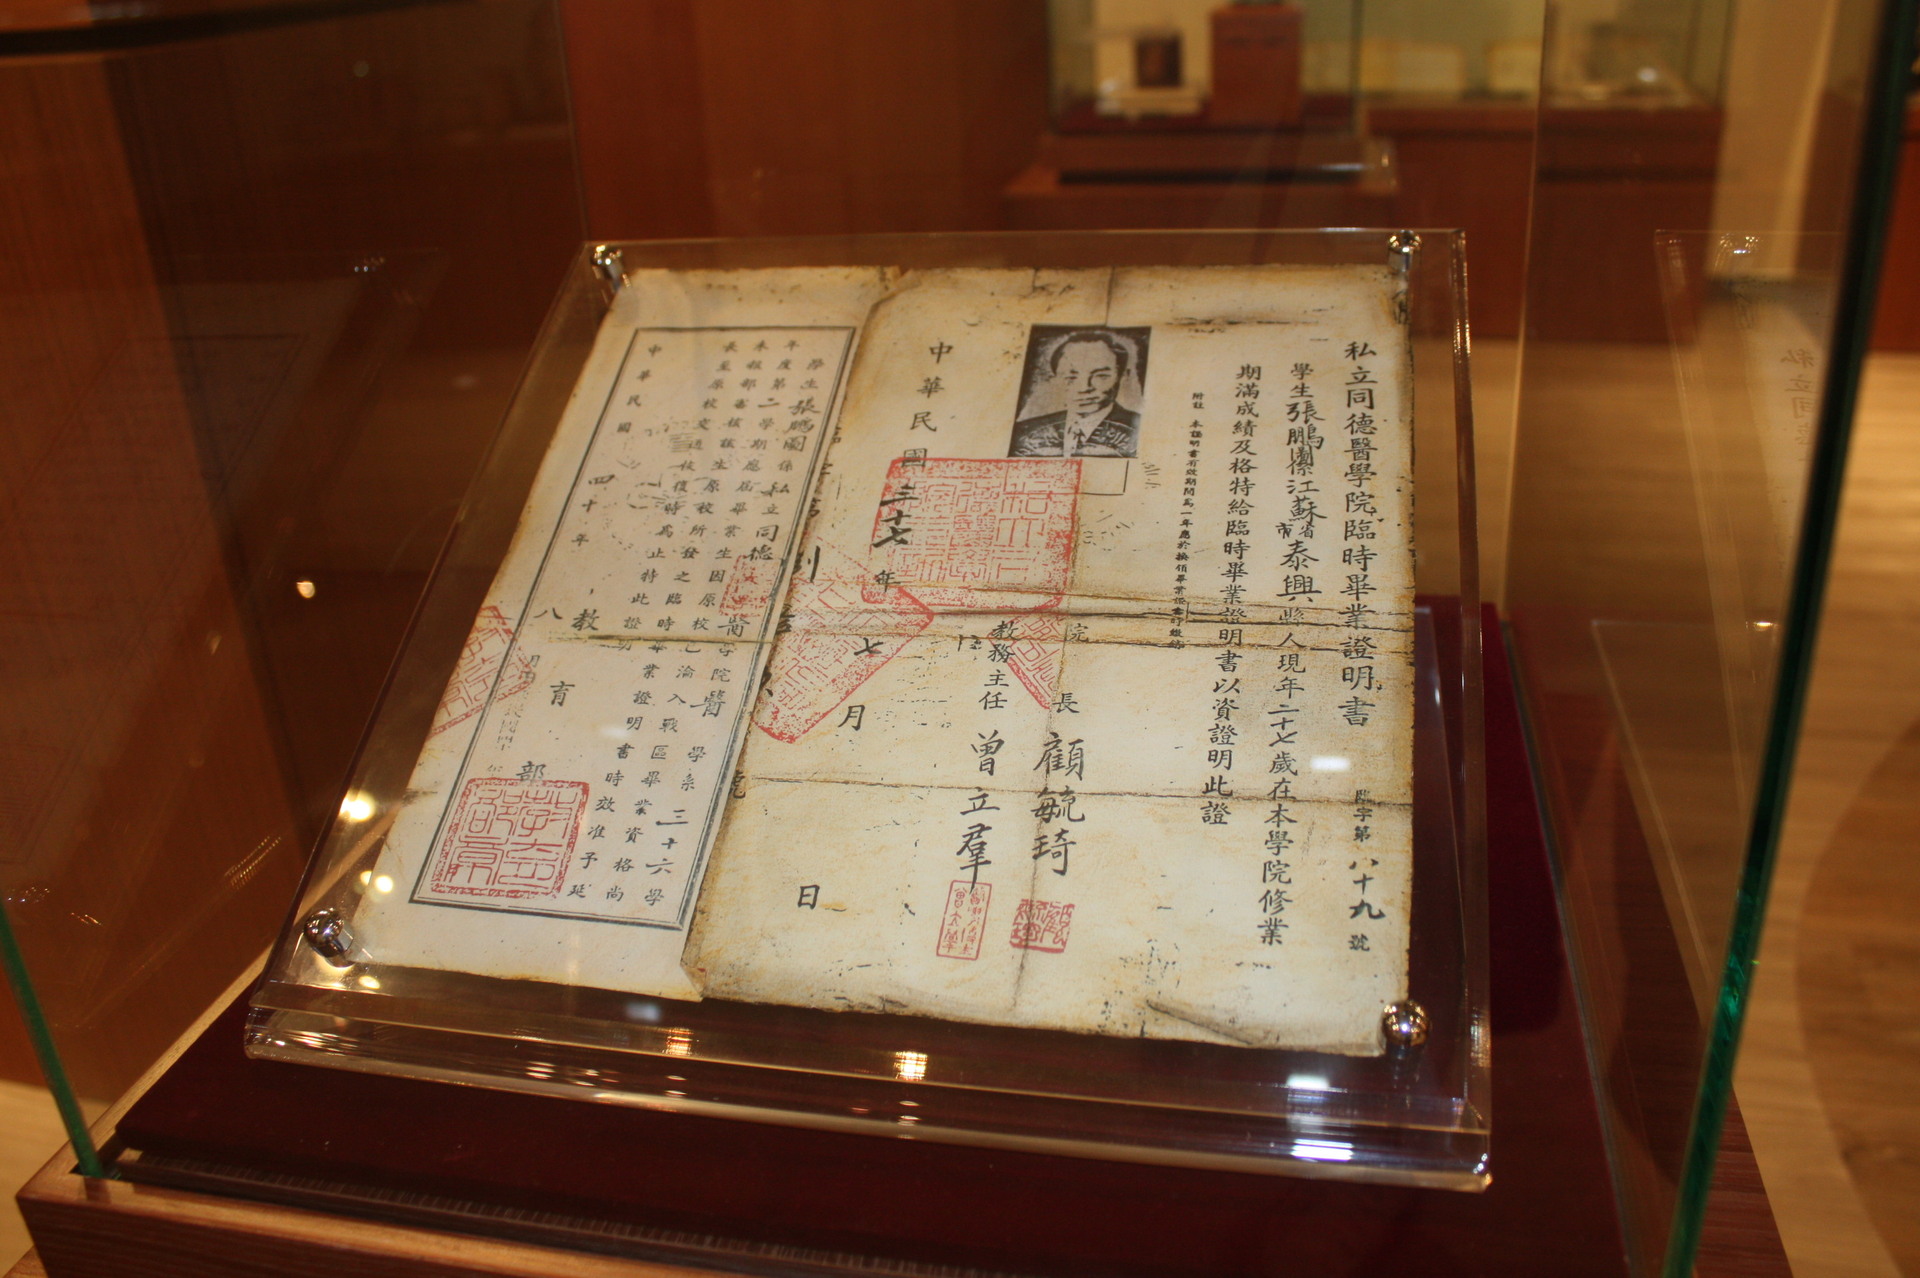 私立同德醫學院臨時畢業證明書
臨字第八十九號
學生張鵬圖係江蘇省市泰興縣人現年二十七歲在本學院修業
期滿成績及格特給臨時畢業證明書以資證明此證
附註 本證明書有效期間為一年應於換領畢業證書時繳銷
院長 顧毓琦
教務主任 曾立羣
中華民國三十七年七月 日
學生張鵬圖係私立同德醫學院醫學系三十六學
年度第二學期應屆畢業生因原校已淪入戰區畢業資格尚
未報部審核該生原校所發之臨時畢業證明書時效准予延
長至原校交通恢復時為止特此證明
教育部
中華民國四十年八月